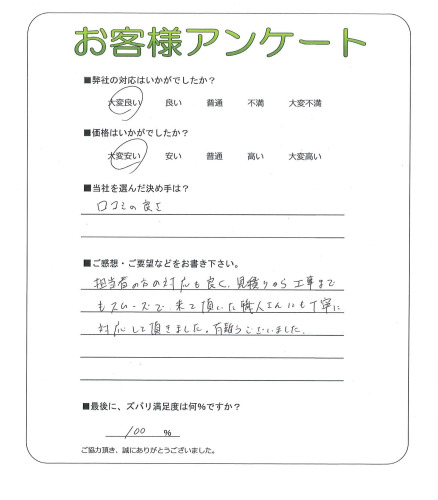 お客様アンケート
■弊社の対応はいかがでしたか？
大変良い 良い 普通 不満 大変不満
■価格はいかがでしたか？
大変安い 安い 普通 高い 大変高い
■当社を選んだ決め手は？
口コミの良さ
■ご感想・ご要望などをお書き下さい。
担当者の方の対応も良く、見積りから工事まで
もスムーズで来て頂いた職人さんにも丁寧に
対応して頂きました。有難うございました。
■最後に、ズバリ満足度は何％ですか？
100 ％
ご協力頂き、誠にありがとうございました。